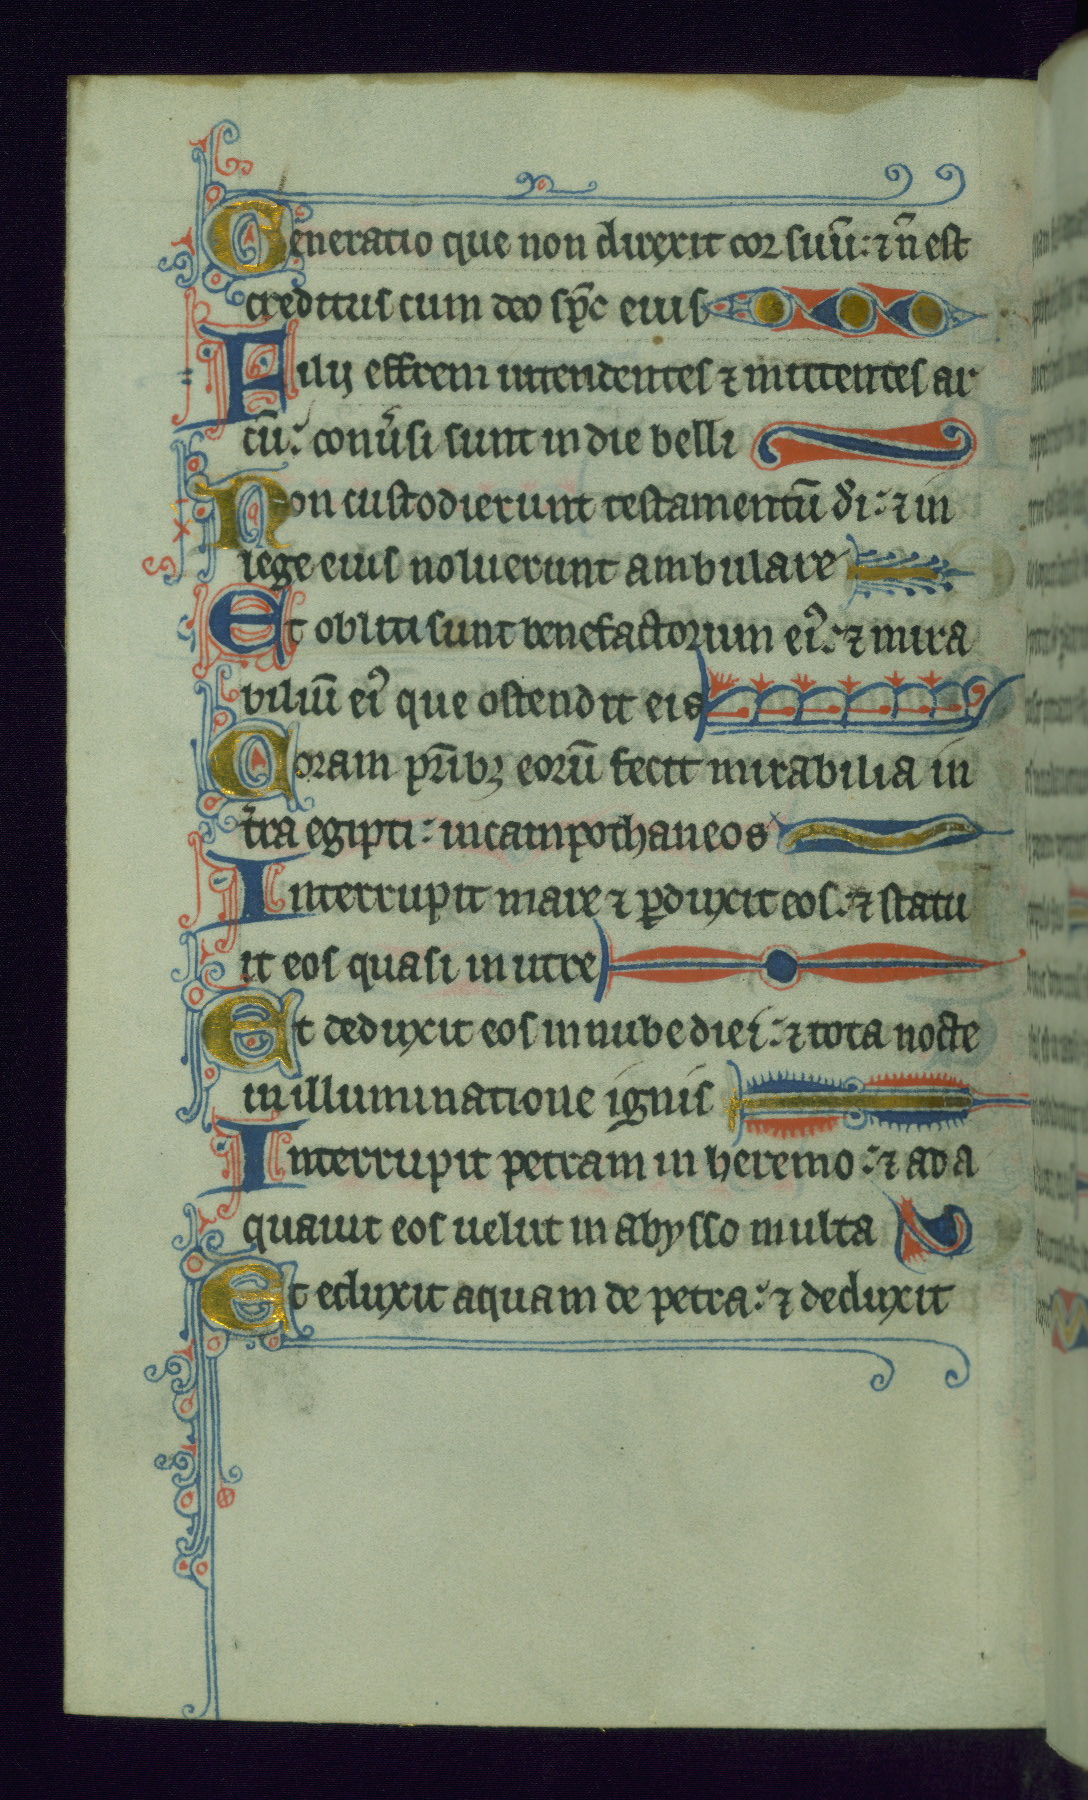 Generatio que non direxit cor suū: ⁊ n̄ est
creditus cum deo sp̄c eius
Filij effrem intendentes ⁊ mittentes ar
cū: conu̓si sunt in die belli
Non custodierunt testamentū dı̄: ⁊ in
lege eius noluerunt ambulare
Et obliti sunt benefactorum eiꝰ: ⁊ mira
biliū eiꝰ que ostendit eis
Coram pr̄ibꝫ eorū fecit mirabilia in
t̓ra egipti: in campo thaneos
Interrupit mare ⁊ ꝑduxit eos: ⁊ statu
it eos quasi in utre
Et deduxit eos in nube diei: ⁊ tota nocte
in illuminatione ignis
Interrupit petram in heremo: ⁊ ada
quauit eos uelut in abysso multa
Et eduxit aquam de petra: ⁊ deduxit